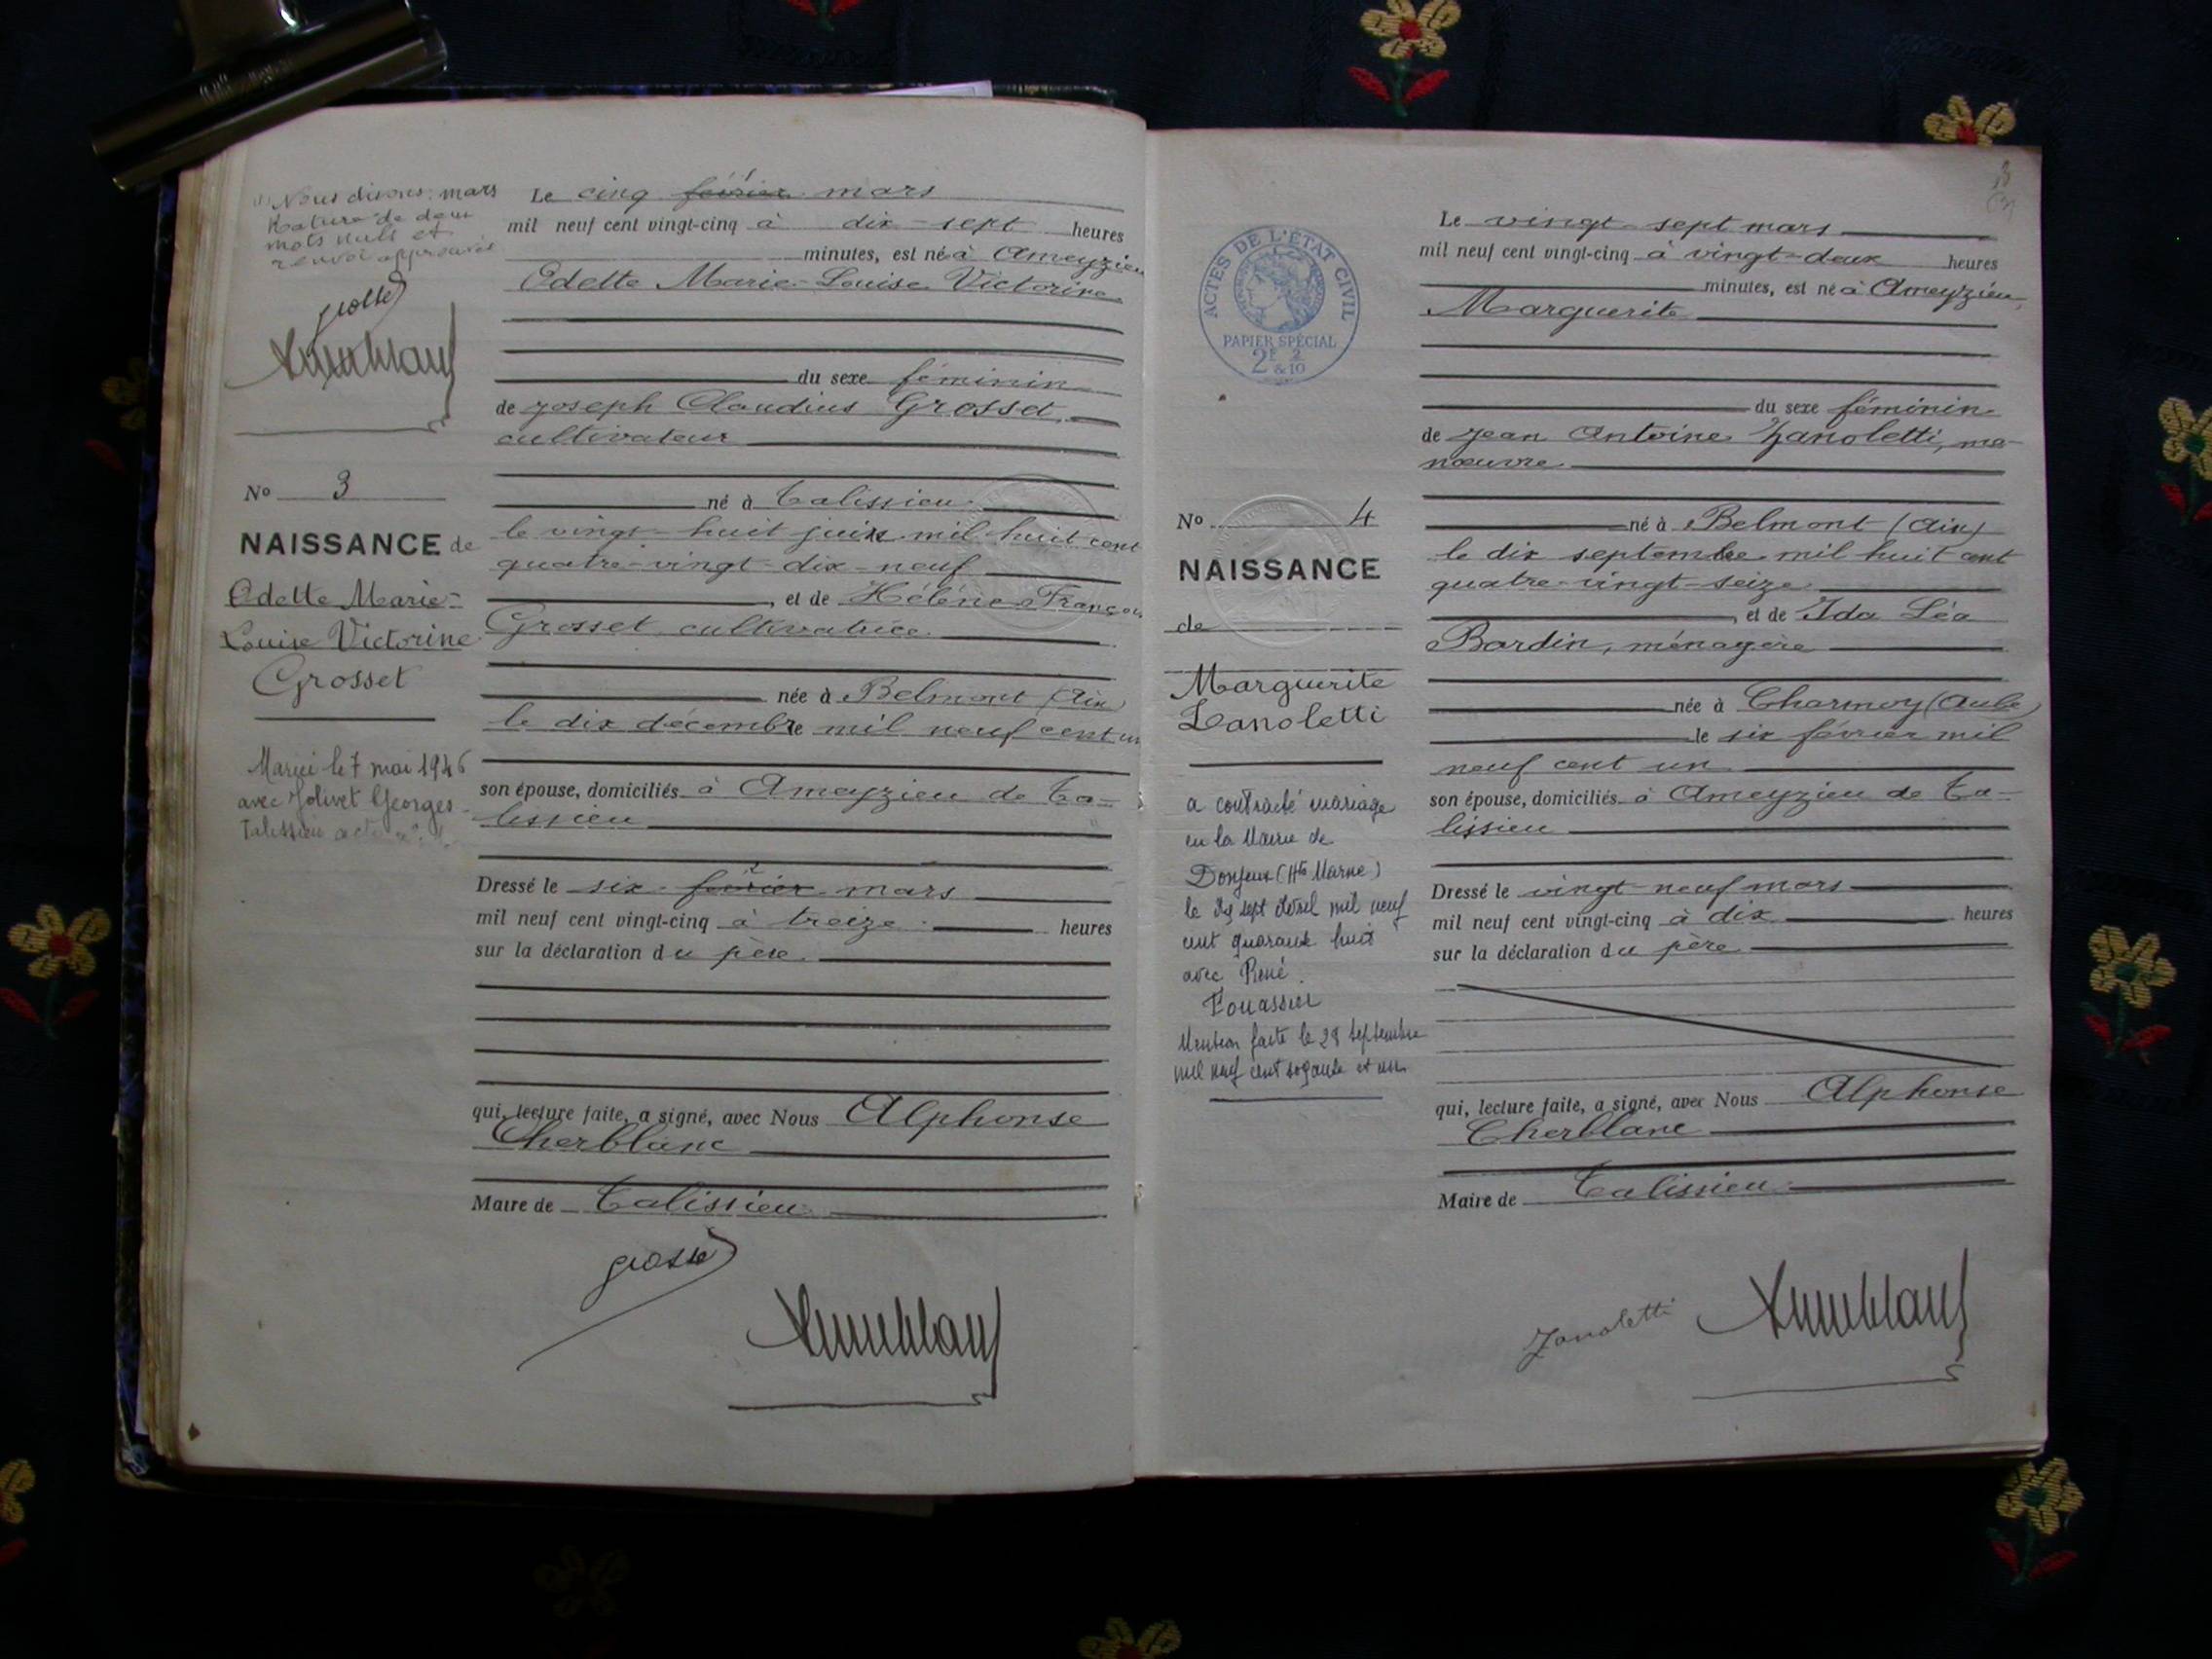 Nous disons: mars
Rature de deux
mots nuls et
renvoi approuvé
Grosset
No 3
NAISSANCE de
Odette Marie-
Louise Victorine
Grosset
Marié le 7 mai 1946
avec Jolivet Georges
Talissieu acte n°
Le cinq février mars
mil neuf cent vingt-cinq à dix-sept heures
minutes, est né à Ameyzieu
Odette Marie-Louise Victorine
du sexe féminin
de Joseph Claudius Grosset,
cultivateur
né à Talissieu
le vingt-huit juin mil huit cent
quatre-vingt-dix-neuf
, et de Hélène
Grosset cultivatrice
née à Belmont (Ain)
le dix décembre mil neuf cent un
son épouse, domiciliés à Ameyzieu de Ta-
lissieu
Dressé le six février mars
mil neuf cent vingt-cinq à treize heures
sur la déclaration du père.
qui, lecture faite, a signé, avec Nous Alphonse
Cherblanc
Maire de Talissieu
Grosset
ACTES DE L'ÉTAT CIVIL
PAPIER SPÉCIAL
2F 2
&10
No 4
NAISSANCE
de
Marguerite
Zanoletti
a contracté mariage
en la Mairie de
Donjeux (Hte Marne)
le dix sept Avril mil neuf
cent quarante huit
avec René
Fouassier
Mention faite le 28 septembre
mil neuf cent soixante et un
Le vingt-sept mars
mil neuf cent vingt-cinq à vingt-deux heures
minutes, est né à Ameyzieu,
Marguerite
du sexe féminin
de Jean Antoine Zanoletti, ma-
nœuvre
né à Belmont (Ain)
le dix septembre mil huit cent
quatre-vingt-seize
, et de Ida Léa
Bardin, ménagère
née à Charmoy (Aube)
le six février mil
neuf cent un
son épouse, domiciliés à Ameyzieu de Ta-
lissieu
Dressé le vingt-neuf mars
mil neuf cent vingt-cinq à dix heures
sur la déclaration du père
qui, lecture faite, a signé, avec Nous Alphonse
Cherblanc
Maire de Talissieu
Zanoletti